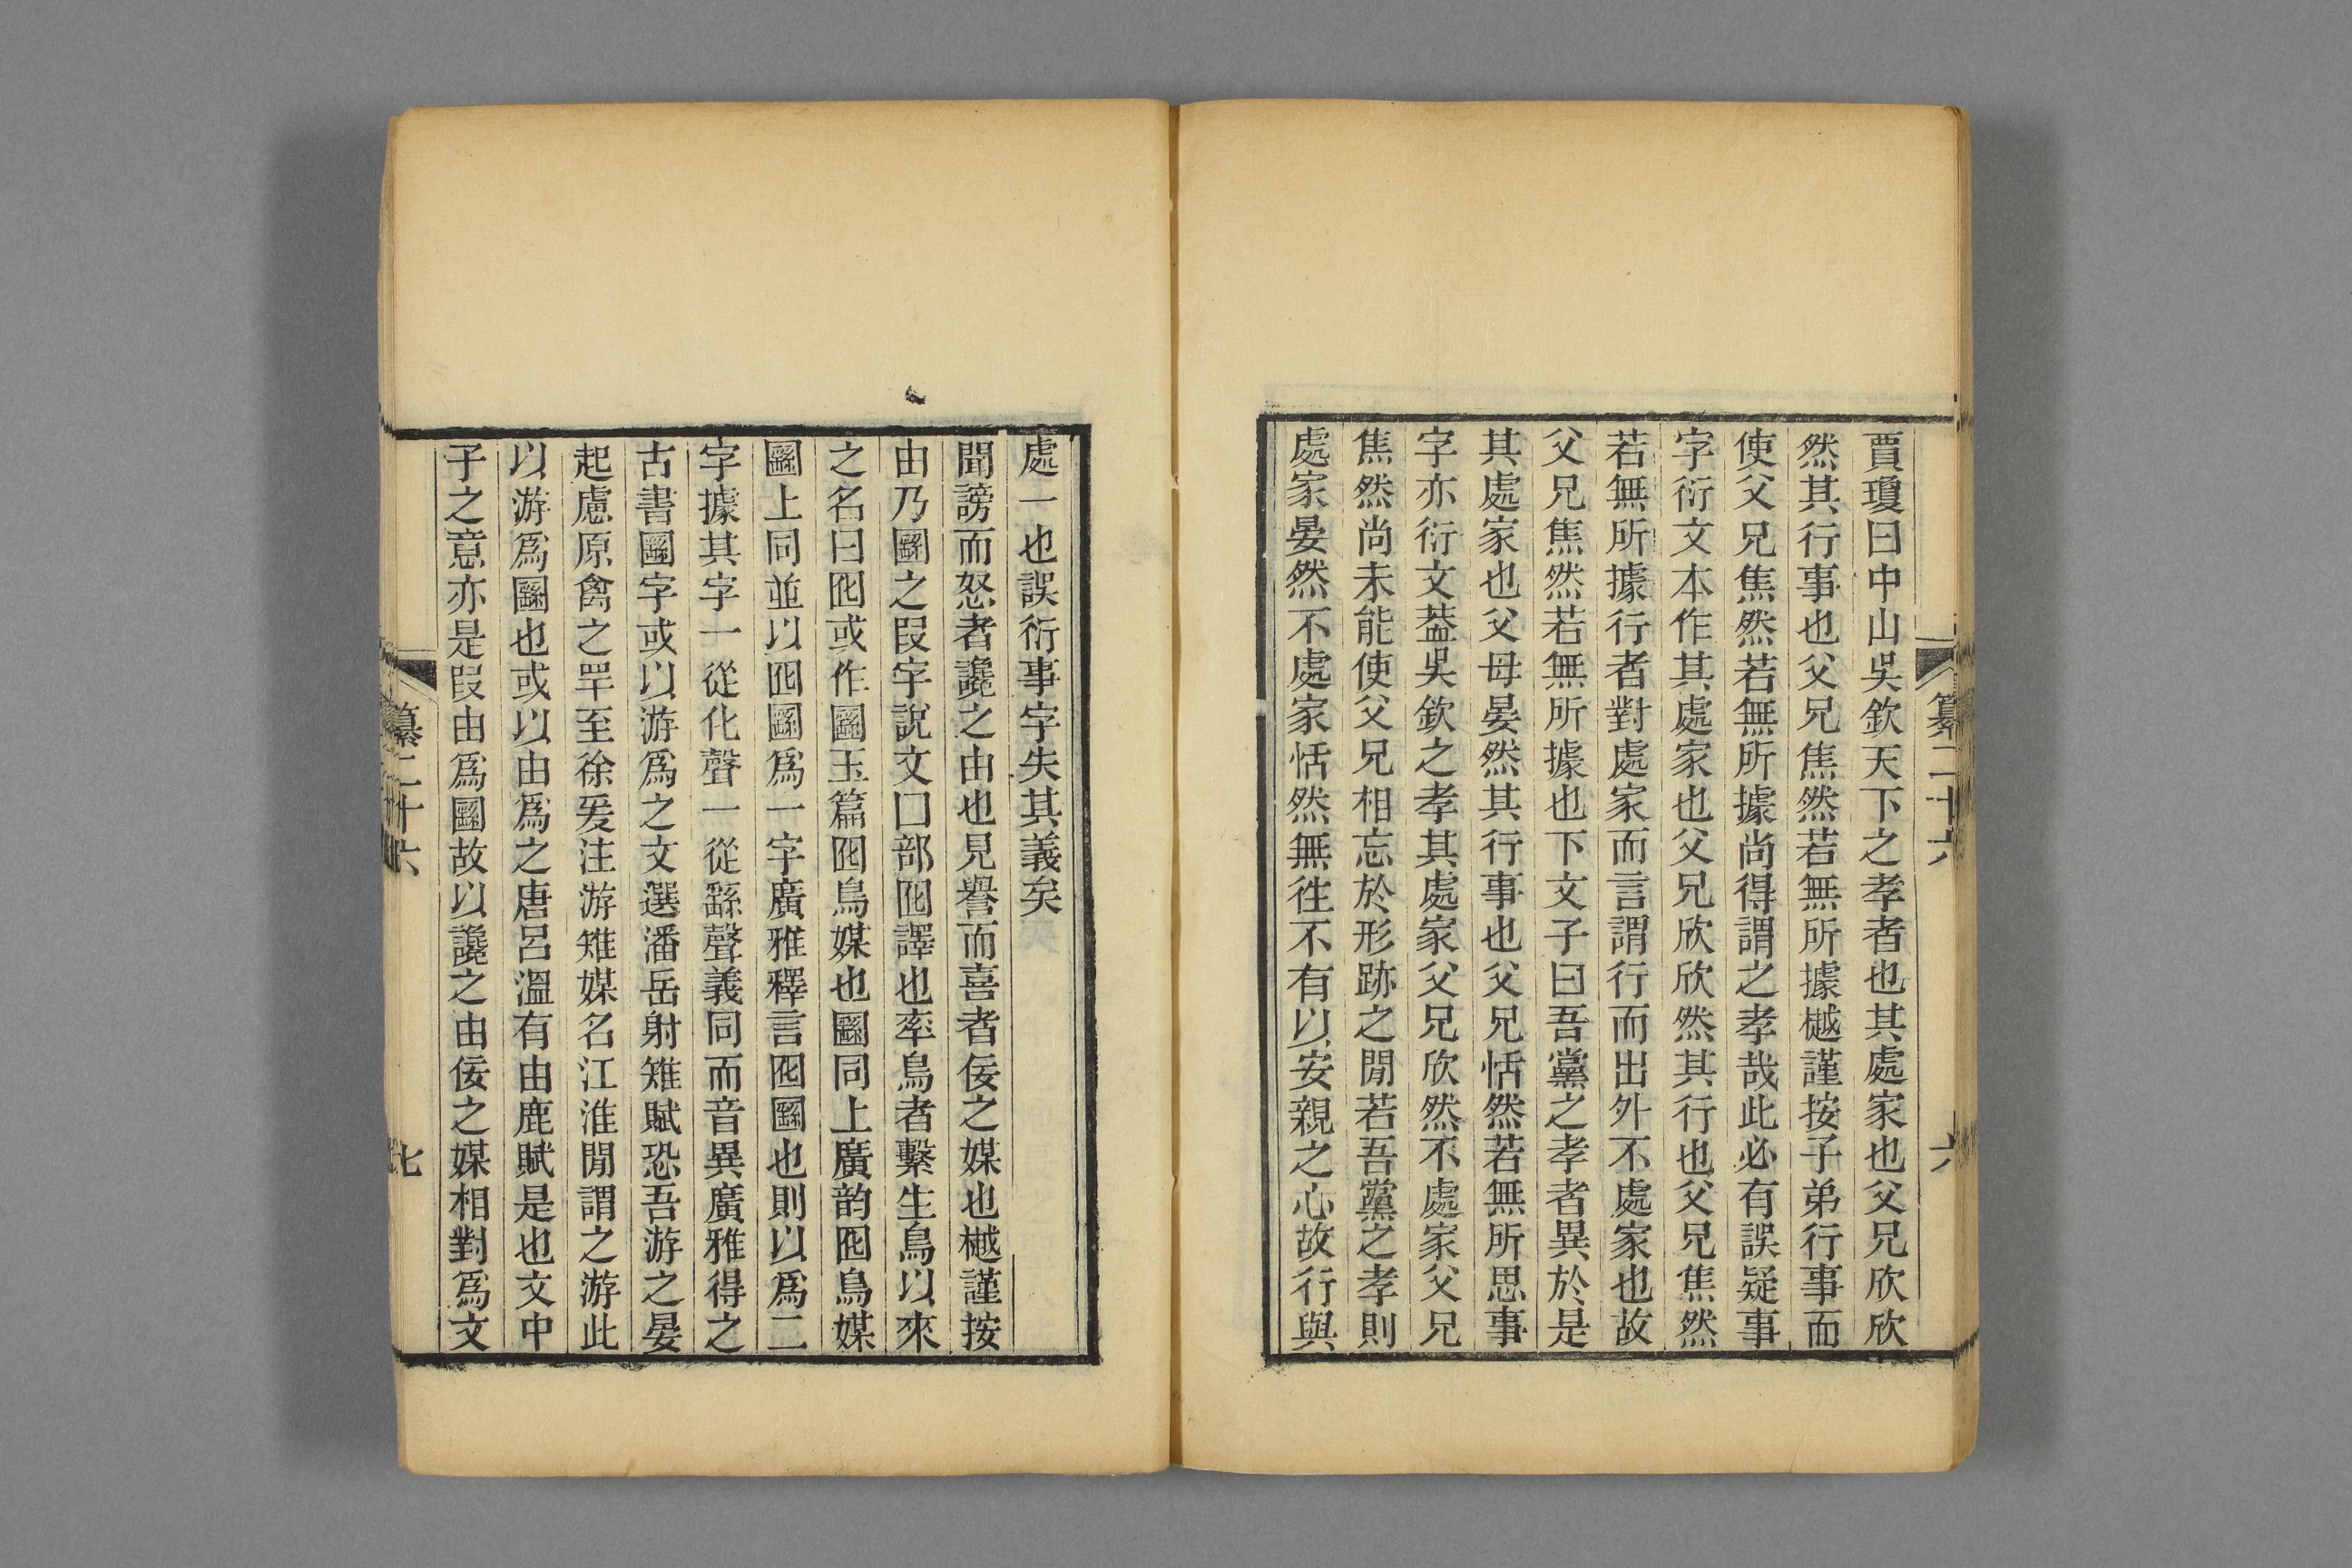 賈瓊曰中山吳欽天下之孝者也其處家也父兄欣欣
然其行事也父兄焦然若無所據樾謹按子弟行事而
使父兄焦然若無所據尚得謂之孝哉此必有誤疑事
字衍文本作其處家也父兄欣欣然其行也父兄焦然
若無所據行者對處家而言謂行而出外不處家也故
父兄焦然若無所據也下文子曰吾黨之孝者異於是
其處家也父母晏然其行事也父兄恬然若無所思事
字亦衍文葢吳欽之孝其處家父兄欣然不處家父兄
焦然尚未能使父兄相忘於形跡之閒若吾黨之孝則
處家晏然不處家恬然無徃不有以安親之心故行與
纂二十六
六
處一也誤衍事字失其義矣
聞謗而怒者讒之由也見譽而喜者佞之媒也樾謹按
由乃圝之叚字說文囗部囮譯也率鳥者繫生鳥以來
之名曰囮或作圝玉篇囮鳥媒也圝同上廣韵囮鳥媒
圝上同並以囮圝爲一字廣雅釋言囮圝也則以爲二
字據其字一從化聲一從繇聲義同而音異廣雅得之
古書圝字或以游爲之文選潘岳射雉賦恐吾游之晏
起慮原禽之罕至徐爰注游雉媒名江淮閒謂之游此
以游爲圝也或以由爲之唐呂溫有由鹿賦是也文中
子之意亦是叚由爲圝故以讒之由佞之媒相對爲文
纂二十六
七